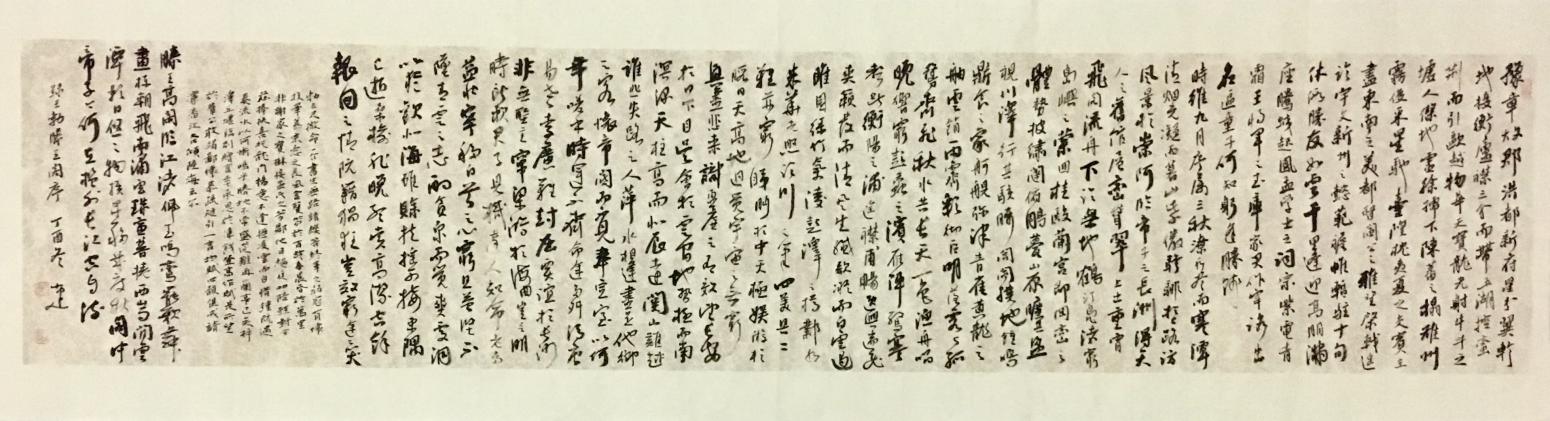 豫章故郡洪都新府星分翼軫
地接衡廬襟三江而帶五湖控蠻
荊而引甌越物華天寶龍光射牛斗之
墟人傑地靈徐孺下陳蕃之榻雄州
霧列俊采星馳臺隍枕夷夏之交賓主
盡東南之美都督閻公之雅望棨戟遙
臨宇文新州之懿範襜帷暫駐十旬
休假勝友如雲千里逢迎高朋滿
座騰蛟起鳳孟學士之詞宗紫電青
霜王將軍之武庫家君作宰路出
名區童子何知躬逢勝餞
時維九月序屬三秋潦水盡而寒潭
清煙光凝而暮山紫儼驂騑於上路訪
風景於崇阿臨帝子之長洲得天
人之舊館層巒聳翠上出重霄
飛閣流丹下臨無地鶴汀鳧渚窮
島嶼之縈迴桂殿蘭宮即岡巒之
體勢披繡闥俯雕甍山原曠其盈
視川澤紆其駭矚閭閻撲地鐘鳴
鼎食之家舸艦彌津青雀黃龍之
舳雲銷雨霽彩徹區明落霞與孤
鶩齊飛秋水共長天一色漁舟唱
晚響窮彭蠡之濱雁陣驚寒
聲斷衡陽之浦遙襟甫暢逸興遄飛
爽籟發而清風生纖歌凝而白雲遏
睢園綠竹氣凌彭澤之樽鄴水
朱華光照臨川之筆四美具二
難并窮睇眄於中天極娛遊於
暇日天高地迥覺宇宙之無窮
興盡悲來識盈虛之有數望長安
於日下目吳會於雲間地勢極而南
溟深天柱高而北辰遠關山難越
誰悲失路之人萍水相逢盡是他鄉
之客懷帝閽而不見奉宣室以何
年嗟乎時運不齊命途多舛馮唐
易老李廣難封屈賈誼於長沙
非無聖主竄梁鴻於海曲豈乏明
時所賴君子見機達人知命老當
益壯寧移白首之心窮且益堅不
墜青雲之志酌貪泉而覺爽處涸
以猶歡北海雖賒扶搖可接東隅
已逝桑榆非晚孟嘗高潔空餘
報國之情阮籍猖狂豈效窮途之哭
滕王高閣臨江渚佩玉鳴鸞罷歌舞
畫棟朝飛南浦雲珠簾暮捲西山雨閒雲
潭影日悠悠物換星移幾度秋閣中
帝子今何在檻外長江空自流
錄王勃滕王閣序 丁酉冬